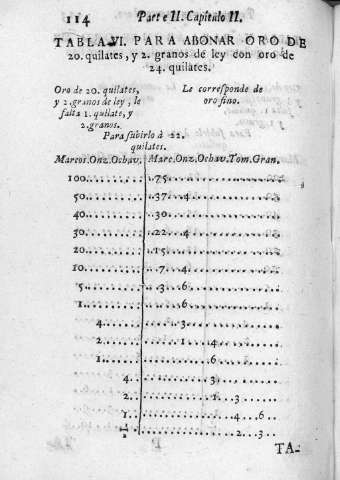 114 Parte II. Capitulo II.
TABLA VI. PARA ABONAR ORO DE
20. quilates, y 2. granos de ley con oro de
24. quilates.
Oro de 20. quilates, Le corresponde de
y 2. granos de ley, le oro fino.
falta 1. quilate, y
2. granos.
Para subirlo à 22.
quilates.
Marcos.Onz.Ochav. Marc.Onz.Ochav.Tom.Gran.
100. 75
50. 37. 4
40. 30.
30. 22. 4
20. 15.
10. 7. 4
5. 3. 6
1. 6.
4. 3
2. 1. 4
1. 6.
4. 3
2. 1. 1. 3
1. 4. 6
2. 3
TA-